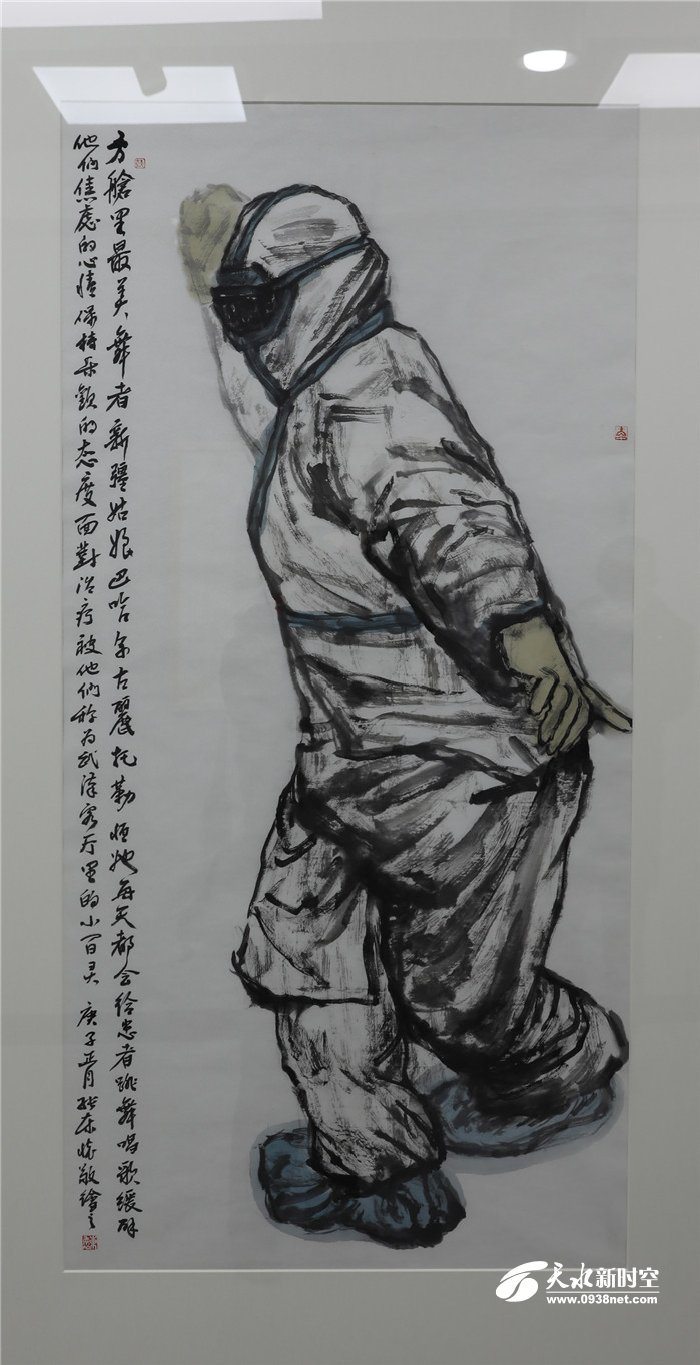 方舱里最美舞者新疆姑娘巴哈尔古丽托勒恒她每天都会给患者跳舞唱歌缓解
他们焦虑的心情保持乐观的态度面對治疗被他们称为武汉客厅里的小百灵 庚子正月 敬繪之
天水新时空
www.0938net.com